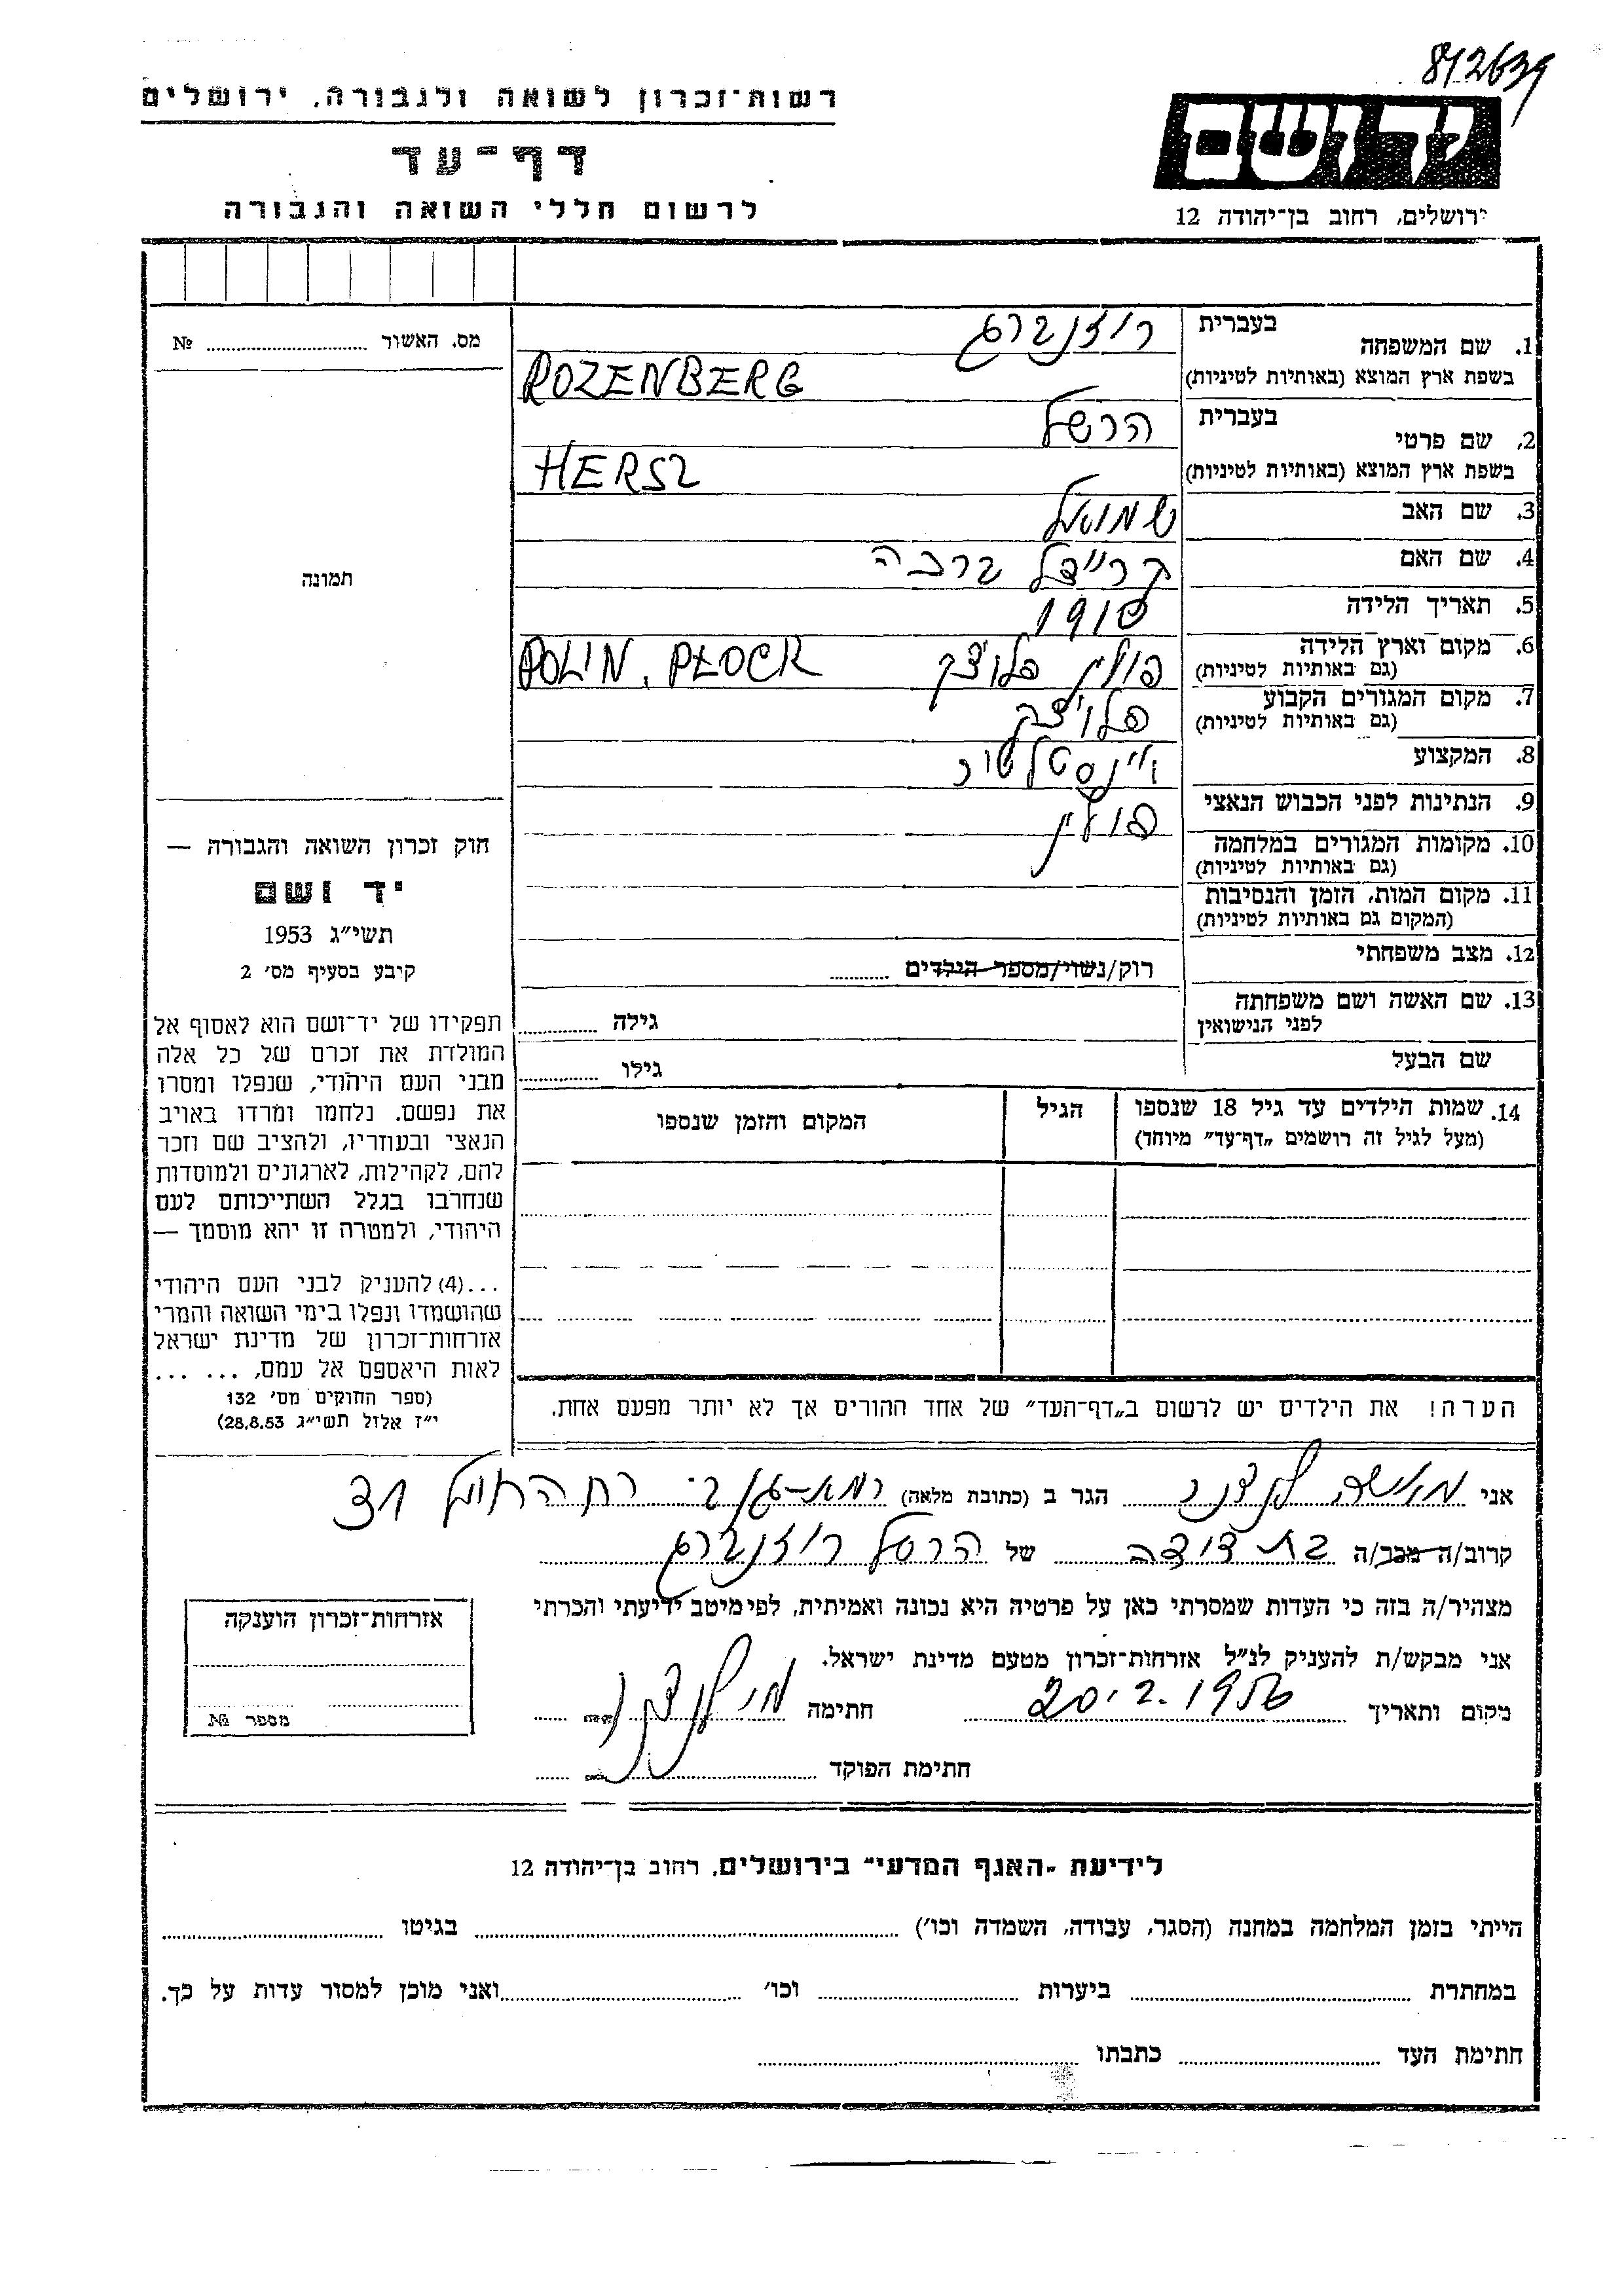 812639
רשות־זכרון לשואה ולגבורה, ירושלים
דף־עד
לרשום חללי השואה והגבורה
יד ושם
ירושלים, רחוב בן־יהודה 12
1. שם המשפחה
בעברית
רוזנברג
בשפת ארץ המוצא (באותיות לטיניות)
ROZENBERG
2. שם פרטי
בעברית
הרשל
בשפת ארץ המוצא (באותיות לטיניות)
HERSZ
3. שם האב
שמואל
4. שם האם
קריידל ברכה
5. תאריך הלידה
1910
6. מקום וארץ הלידה
(גם באותיות לטיניות)
פולין פלוצק POLIN, PŁOCK
7. מקום המגורים הקבוע
(גם באותיות לטיניות)
פלוצק
8. המקצוע
9. הנתינות לפני הכבוש הנאצי
פולין
10. מקומות המגורים במלחמה
(גם באותיות לטיניות)
11. מקום המות, הזמן והנסיבות
(המקום גם באותיות לטיניות)
12. מצב משפחתי
רוק/נשוי/מספר הילדים
13. שם האשה ושם משפחתה
לפני הנישואין
גילה
שם הבעל
גילו
14. שמות הילדים עד גיל 18 שנספו
(מעל לגיל זה רושמים „דף־עד” מיוחד)
הגיל
המקום והזמן שנספו
הערה! את הילדים יש לרשום ב„דף־העד” של אחד ההורים אך לא יותר מפעם אחת.
מס. האשור № 
תמונה
חוק זכרון השואה והגבורה —
יד ושם
תשי״ג 1953
קיבע בסעיף מס׳ 2
תפקידו של יד־ושם הוא לאסוף אל
המולדת את זכרם של כל אלה
מבני העם היהודי, שנפלו ומסרו
את נפשם. נלחמו ומרדו באויב
הנאצי ובעוזריו, ולהציב שם וזכר
להם, לקהילות, לארגונים ולמוסדות
שנחרבו בגלל השתייכותם לעם
היהודי, ולמטרה זו יהא מוסמך —
...(4) להעניק לבני העם היהודי
שהושמדו ונפלו בימי השואה והמרי
אזרחות־זכרון של מדינת ישראל
לאות היאספם אל עמם, ... ...
(ספר החוקים מס׳ 132
י״ז אלול תשי״ג 28.8.53)
אני הגר ב (כתובת מלאה) רמת־גן רח 31
קרוב/ה מכר/ה בת דודה של הרשל רוזנברג
מצהיר/ה בזה כי העדות שמסרתי כאן על פרטיה היא נכונה ואמיתית, לפי מיטב ידיעתי והכרתי
אני מבקש/ת להעניק לנ״ל אזרחות־זכרון מטעם מדינת ישראל.
מקום ותאריך 20.2.1956 חתימה
חתימת הפוקד
אזרחות־זכרון הוענקה
מספר №
לידיעת „האגף המדעי” בירושלים, רחוב בן־יהודה 12
הייתי בזמן המלחמה במחנה (הסגר, עבודה, השמדה וכו׳) בגיטו
במחתרת ביערות וכו׳ ואני מוכן למסור עדות על כך.
חתימת העד כתבתו